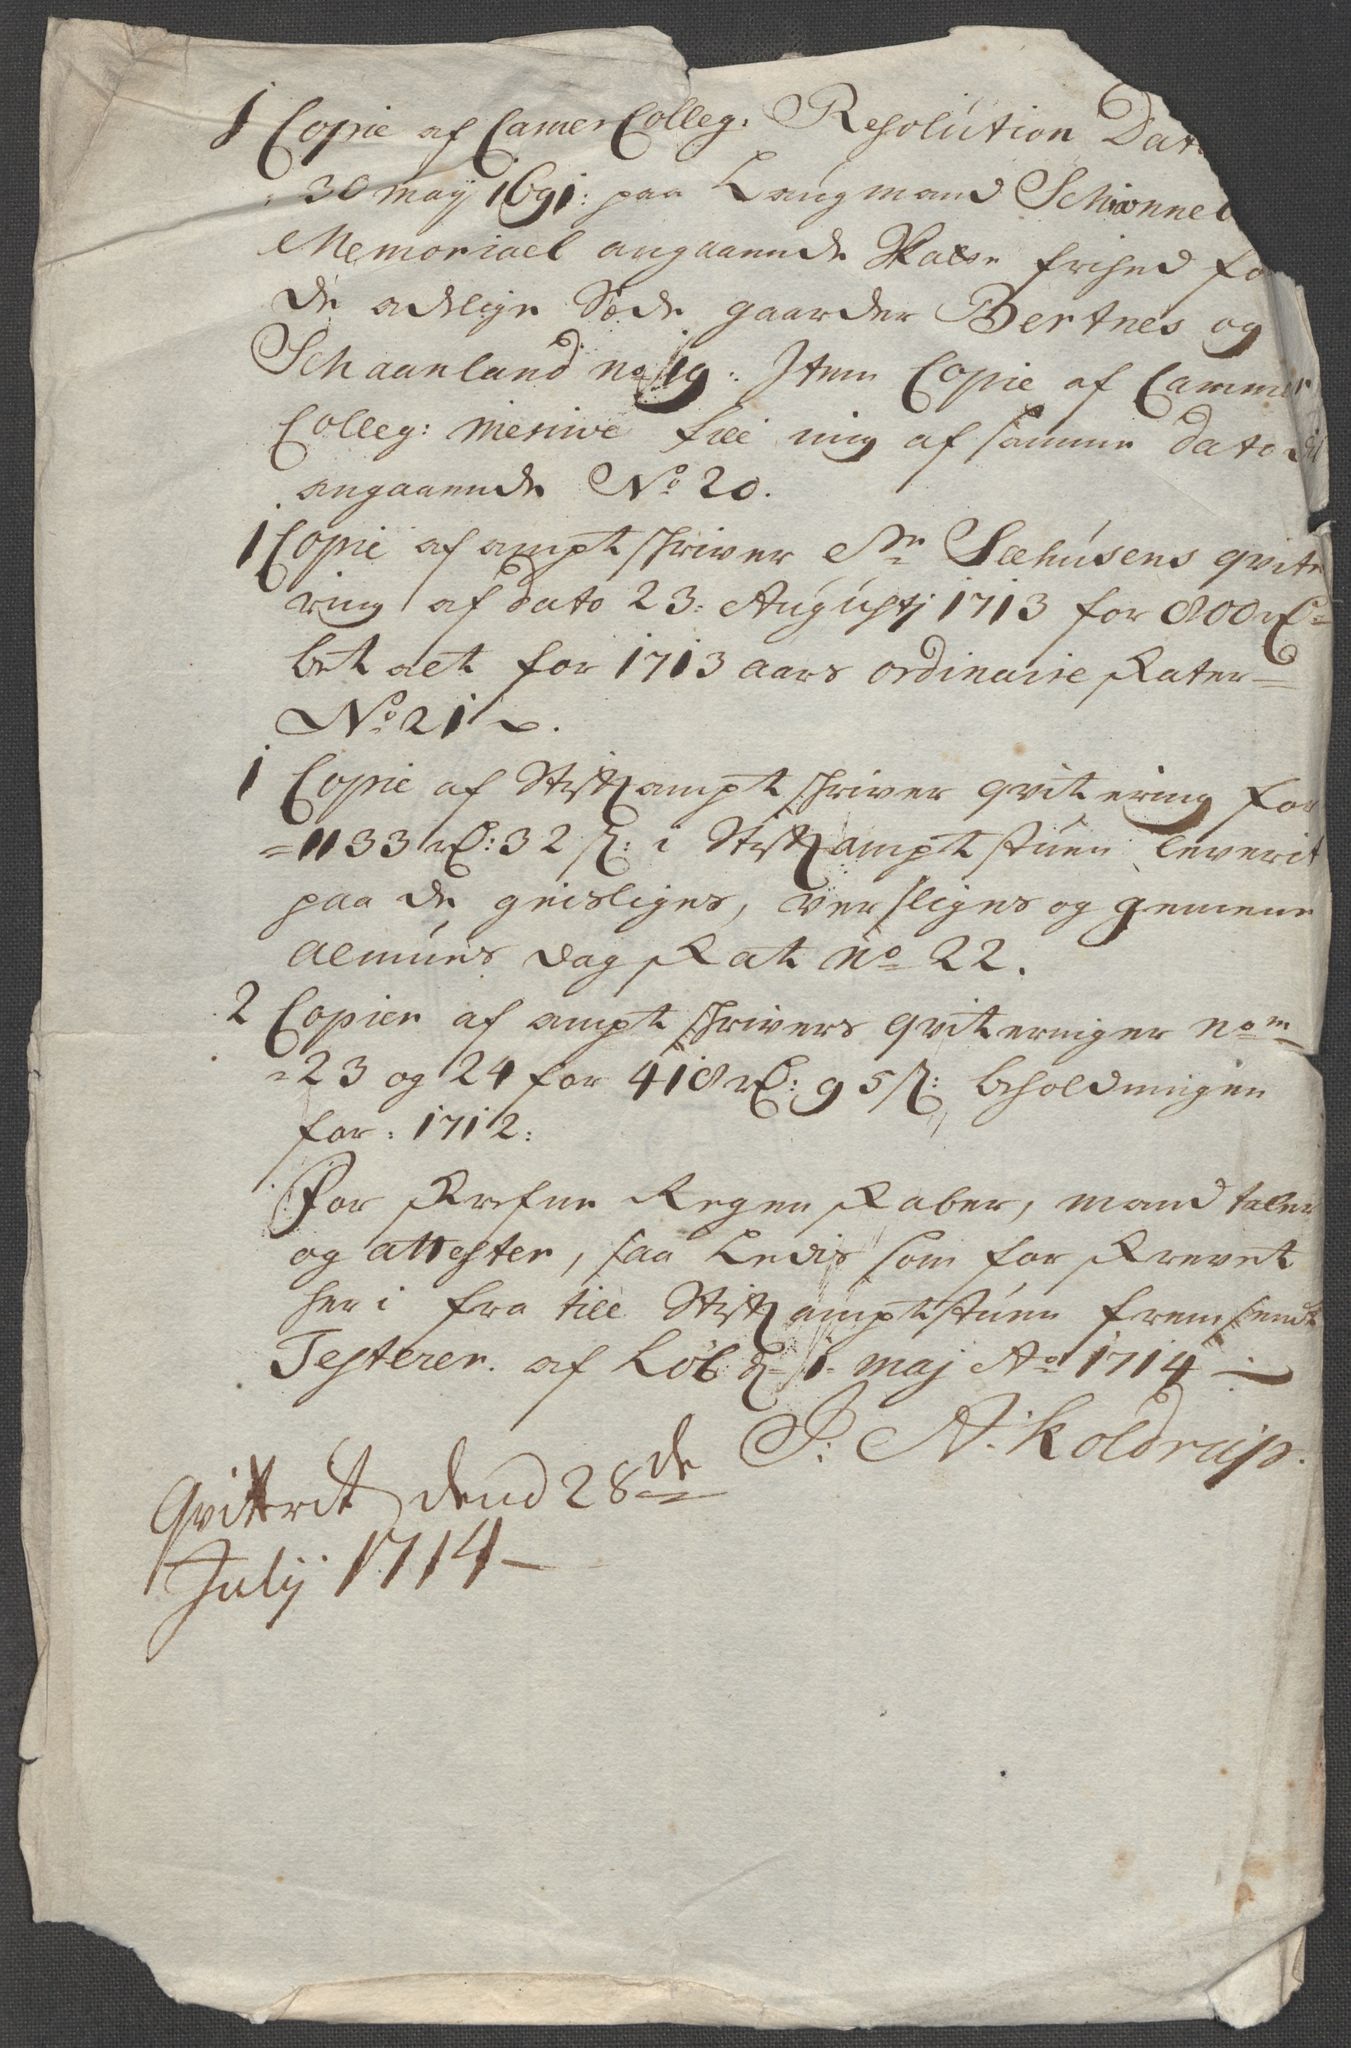 1 Copie af Camer Colleg. Resolution Dat
30 maij 1691: paa Laugmand Schiønneb
Memoriael angaaende Skatte frihed fo
de adelige Sæde gaarder Bertnes og
Schaanland no 19. Item Copie af Cammer
Colleg: mesive till mig af samme dato
angaaende No 20.
1 Copie af ampt skriver Sr Sæhusens qvite
ring af dato 23: Augustj 1713 for 800 rd
betaelt for 1713 aars ordinarie skater
No 21
1 Copie af Stiftampt skriver qvitering for
1133 rd: 32 s: i Stiftamptstuen leverit
paa de geisliges, verssliges og gemene
Almues dag skat no 22.
2 Copier af ampt skrivers qviteringer nom
23 og 24 for 418 rd: 95 s: beholdningen
for: 1712:
For skrefne Regenskaber, mandtaller
og attester, saa Ledis som for skrevet
her i fra till Stiftamptstuen fremsendt
Testerer. af Løb d 1 maj Ao 1714
P: A. Koldrup.
Qvitterit dend 28de
Julij 1714